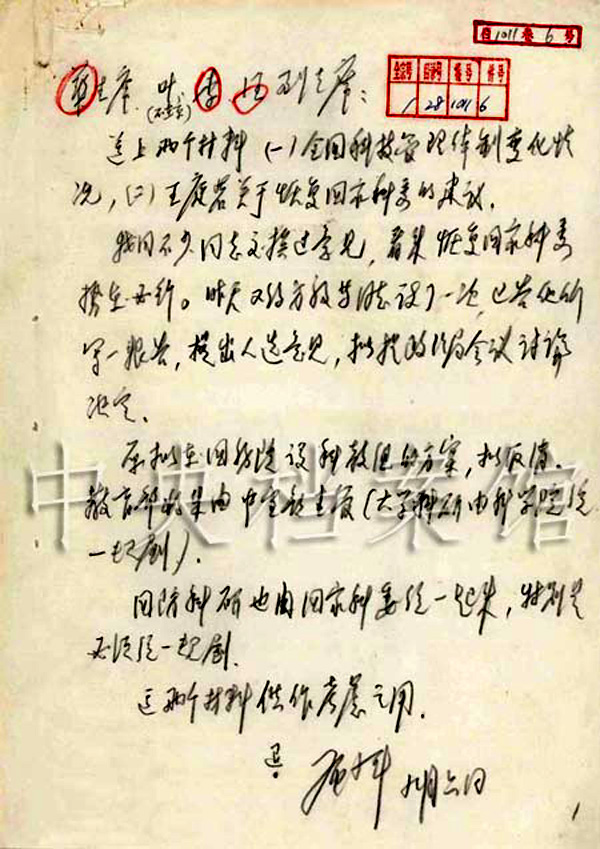 自1011卷6号
全宗号 目录号 卷号 件号
1 28 1011 6
华主席、叶、李、汪副主席：
(不在京)
送上两个材料(一)全国科技管理体制变化情
况，(二)王庭若关于恢复国家科委的建议。
我同不少同志交换过意见，看来恢复国家科委
势在必行。昨天又约方毅等同志谈了一次，已告他们
写一报告，提出人选意见，拟提政治局会议讨论
决定。
原拟在国务院设科教组的方案，拟取消。
教育部将来由中宣部直接(大学科研由科学院统
一规划)。
国防科研也由国家科委统一起来，特别是
必须统一规划。
这两个材料供作考虑之用。
邓小平 九月六日
1
中央档案馆